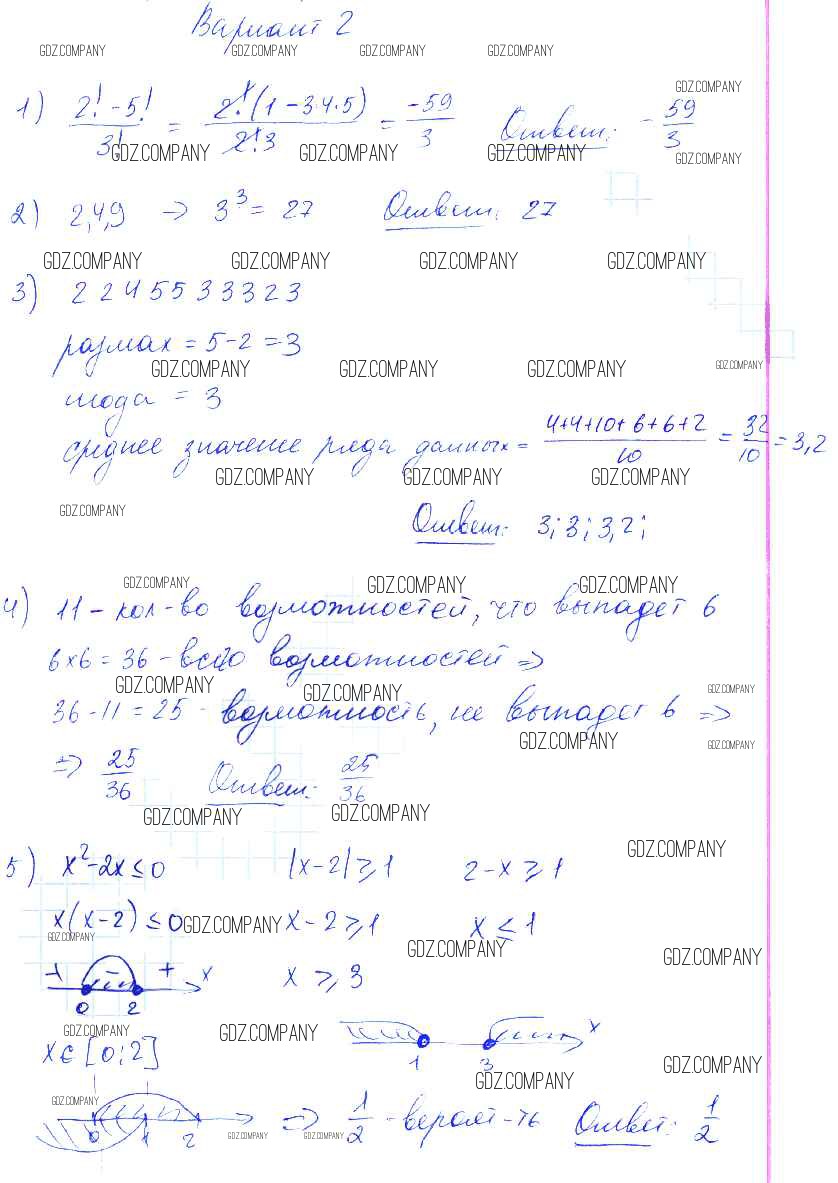 Вариант 2
GDZ.COMPANY GDZ.COMPANY GDZ.COMPANY GDZ.COMPANY
GDZ.COMPANY
1) (2! - 5!)/3! = (2!(1 - 3·4·5))/(2!·3) = -59/3 Ответ: -59/3
GDZ.COMPANY GDZ.COMPANY GDZ.COMPANY GDZ.COMPANY
2) 2,4,9 → 3³ = 27 Ответ: 27
GDZ.COMPANY GDZ.COMPANY GDZ.COMPANY GDZ.COMPANY
3) 2 2 4 5 5 3 3 3 2 3
размах = 5-2 = 3
GDZ.COMPANY GDZ.COMPANY GDZ.COMPANY GDZ.COMPANY
мода = 3
среднее значение ряда данных = (4+4+10+6+6+2)/10 = 32/10 = 3,2
GDZ.COMPANY GDZ.COMPANY GDZ.COMPANY
GDZ.COMPANY
Ответ: 3; 3; 3,2;
GDZ.COMPANY GDZ.COMPANY GDZ.COMPANY
4) 11 - кол-во возможностей, что выпадет 6
6×6 = 36 - всего возможностей ⇒
GDZ.COMPANY GDZ.COMPANY GDZ.COMPANY
36 - 11 = 25 - возможность, не выпадет 6 ⇒
GDZ.COMPANY GDZ.COMPANY
⇒ 25/36 Ответ: 25/36
GDZ.COMPANY GDZ.COMPANY
GDZ.COMPANY
5) x²-2x ≤ 0 |x-2| ≥ 1 2-x ≥ 1
x(x-2) ≤ 0 GDZ.COMPANY x-2 ≥ 1 x ≤ 1
GDZ.COMPANY GDZ.COMPANY GDZ.COMPANY
+ - + x x ≥ 3
0 2
GDZ.COMPANY GDZ.COMPANY x
x∈[0;2] 1 3 GDZ.COMPANY
GDZ.COMPANY
GDZ.COMPANY
0 1 2 ⇒ 1/2 - вероят-ть Ответ: 1/2
GDZ.COMPANY GDZ.COMPANY